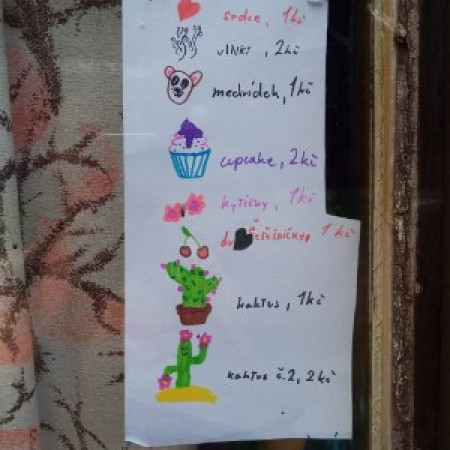 srdce, 1kč
vlnky, 2kč
medvídek, 1kč
cupcake, 2kč
kytičky, 1kč
třešničky 1kč
kaktus, 1kč
kaktus č.2, 2kč